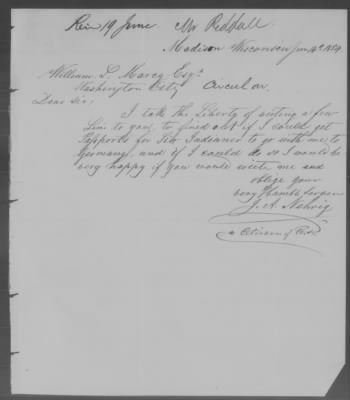 Recd 19 June Mr Reddall
Madison Wisconsin Jun 14th 1854.
William L. Marcy Esqr.
Washington City Circular.
Dear Sir;
I take the Liberty of writing a few
Line to you, to find out if I could get
Pasports for Six Indianer to go with me to
Germany, and if I could do so I would be
very happy if you would write me and
oblige your
very Humble Servan
J. A. Nehrig
a Citizen of